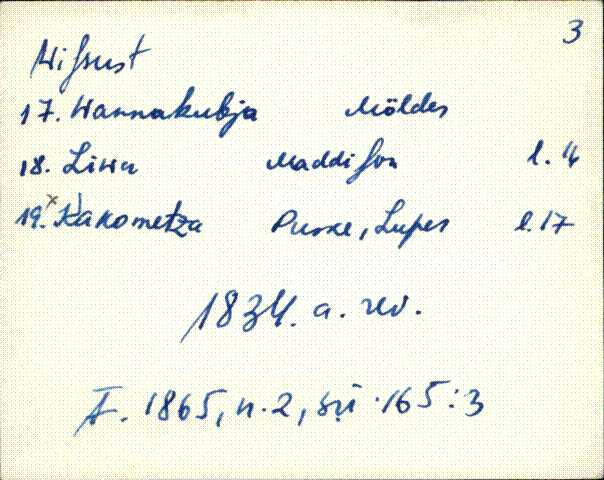 3
Wissust
17. Wannakubja Möldes
18. Liwa Maddisson l. 16
19. Kakometza Purre, Lupes l. 17
1834. a. rev.
F. 1865, n. 2, sü. 165:3